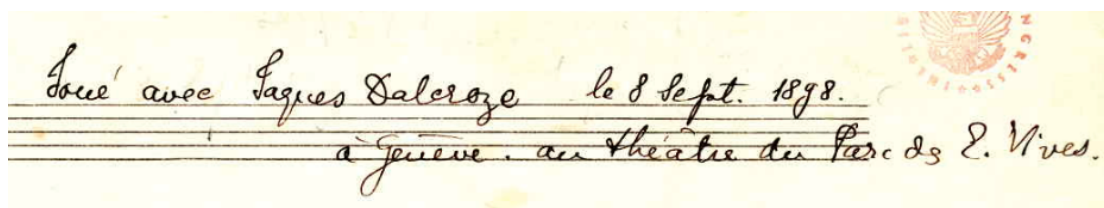 Joué avec Jaques Dalcroze le 8 Sept. 1898.
à Genève. au théâtre du Parc ds E. Vives.